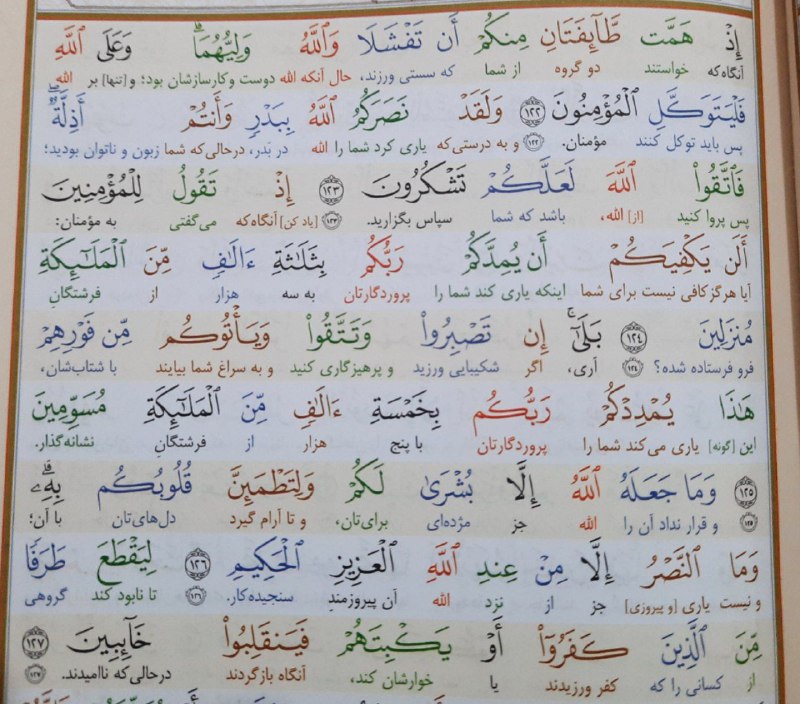 إِذْ هَمَّت طَّآئِفَتَانِ مِنكُمْ أَن تَفْشَلَا وَٱللَّهُ وَلِيُّهُمَا ۗ وَعَلَى ٱللَّهِ
آنگاه‌که خواستند دو گروه از شما که سستی ورزند، حال آنکه الله دوست و کارسازشان بود؛ و [تنها] بر الله
فَلْيَتَوَكَّلِ ٱلْمُؤْمِنُونَ ۝١٢٢ وَلَقَدْ نَصَرَكُمُ ٱللَّهُ بِبَدْرٍ وَأَنتُمْ أَذِلَّةٌ ۖ
پس باید توکل کنند مؤمنان. ۝١٢٢ و به درستی‌که یاری کرد شما را الله در بَدر، درحالی‌که شما زبون و ناتوان بودید؛
فَٱتَّقُوا۟ ٱللَّهَ لَعَلَّكُمْ تَشْكُرُونَ ۝١٢٣ إِذْ تَقُولُ لِلْمُؤْمِنِينَ
پس پروا کنید [از] الله، باشد که شما سپاس بگزارید. ۝١٢٣ [یاد کن] آنگاه‌که می‌گفتی به مؤمنان:
أَلَن يَكْفِيَكُمْ أَن يُمِدَّكُمْ رَبُّكُم بِثَلَٰثَةِ ءَالَٰفٍ مِّنَ ٱلْمَلَٰٓئِكَةِ
آیا هرگز کافی نیست برای شما اینکه یاری کند شما را پروردگارتان به سه هزار از فرشتگانِ
مُنزَلِينَ ۝١٢٤ بَلَىٰٓ ۚ إِن تَصْبِرُوا۟ وَتَتَّقُوا۟ وَيَأْتُوكُم مِّن فَوْرِهِمْ
فرو فرستاده شده؟ ۝١٢٤ آری، اگر شکیبایی ورزید و پرهیزگاری کنید و به سراغ شما بیایند با شتاب‌شان،
هَٰذَا يُمْدِدْكُمْ رَبُّكُم بِخَمْسَةِ ءَالَٰفٍ مِّنَ ٱلْمَلَٰٓئِكَةِ مُسَوِّمِينَ
این [گونه] یاری می‌کند شما را پروردگارتان با پنج هزار از فرشتگانِ نشانه‌گذار.
۝١٢٥ وَمَا جَعَلَهُ ٱللَّهُ إِلَّا بُشْرَىٰ لَكُمْ وَلِتَطْمَئِنَّ قُلُوبُكُم بِهِۦ ۗ
۝١٢٥ و قرار نداد آن را الله جز مژده‌ای برای‌تان، و تا آرام گیرد دل‌های‌تان با آن؛
وَمَا ٱلنَّصْرُ إِلَّا مِنْ عِندِ ٱللَّهِ ٱلْعَزِيزِ ٱلْحَكِيمِ ۝١٢٦ لِيَقْطَعَ طَرَفًا
و نیست یاری [و پیروزی] جز از نزد الله آن پیروزمندِ سنجیده‌کار. ۝١٢٦ تا نابود کند گروهی
مِّنَ ٱلَّذِينَ كَفَرُوٓا۟ أَوْ يَكْبِتَهُمْ فَيَنقَلِبُوا۟ خَآئِبِينَ ۝١٢٧
از کسانی را که کفر ورزیدند یا خوارشان کند، آنگاه بازگردند درحالی‌که ناامیدند. ۝١٢٧